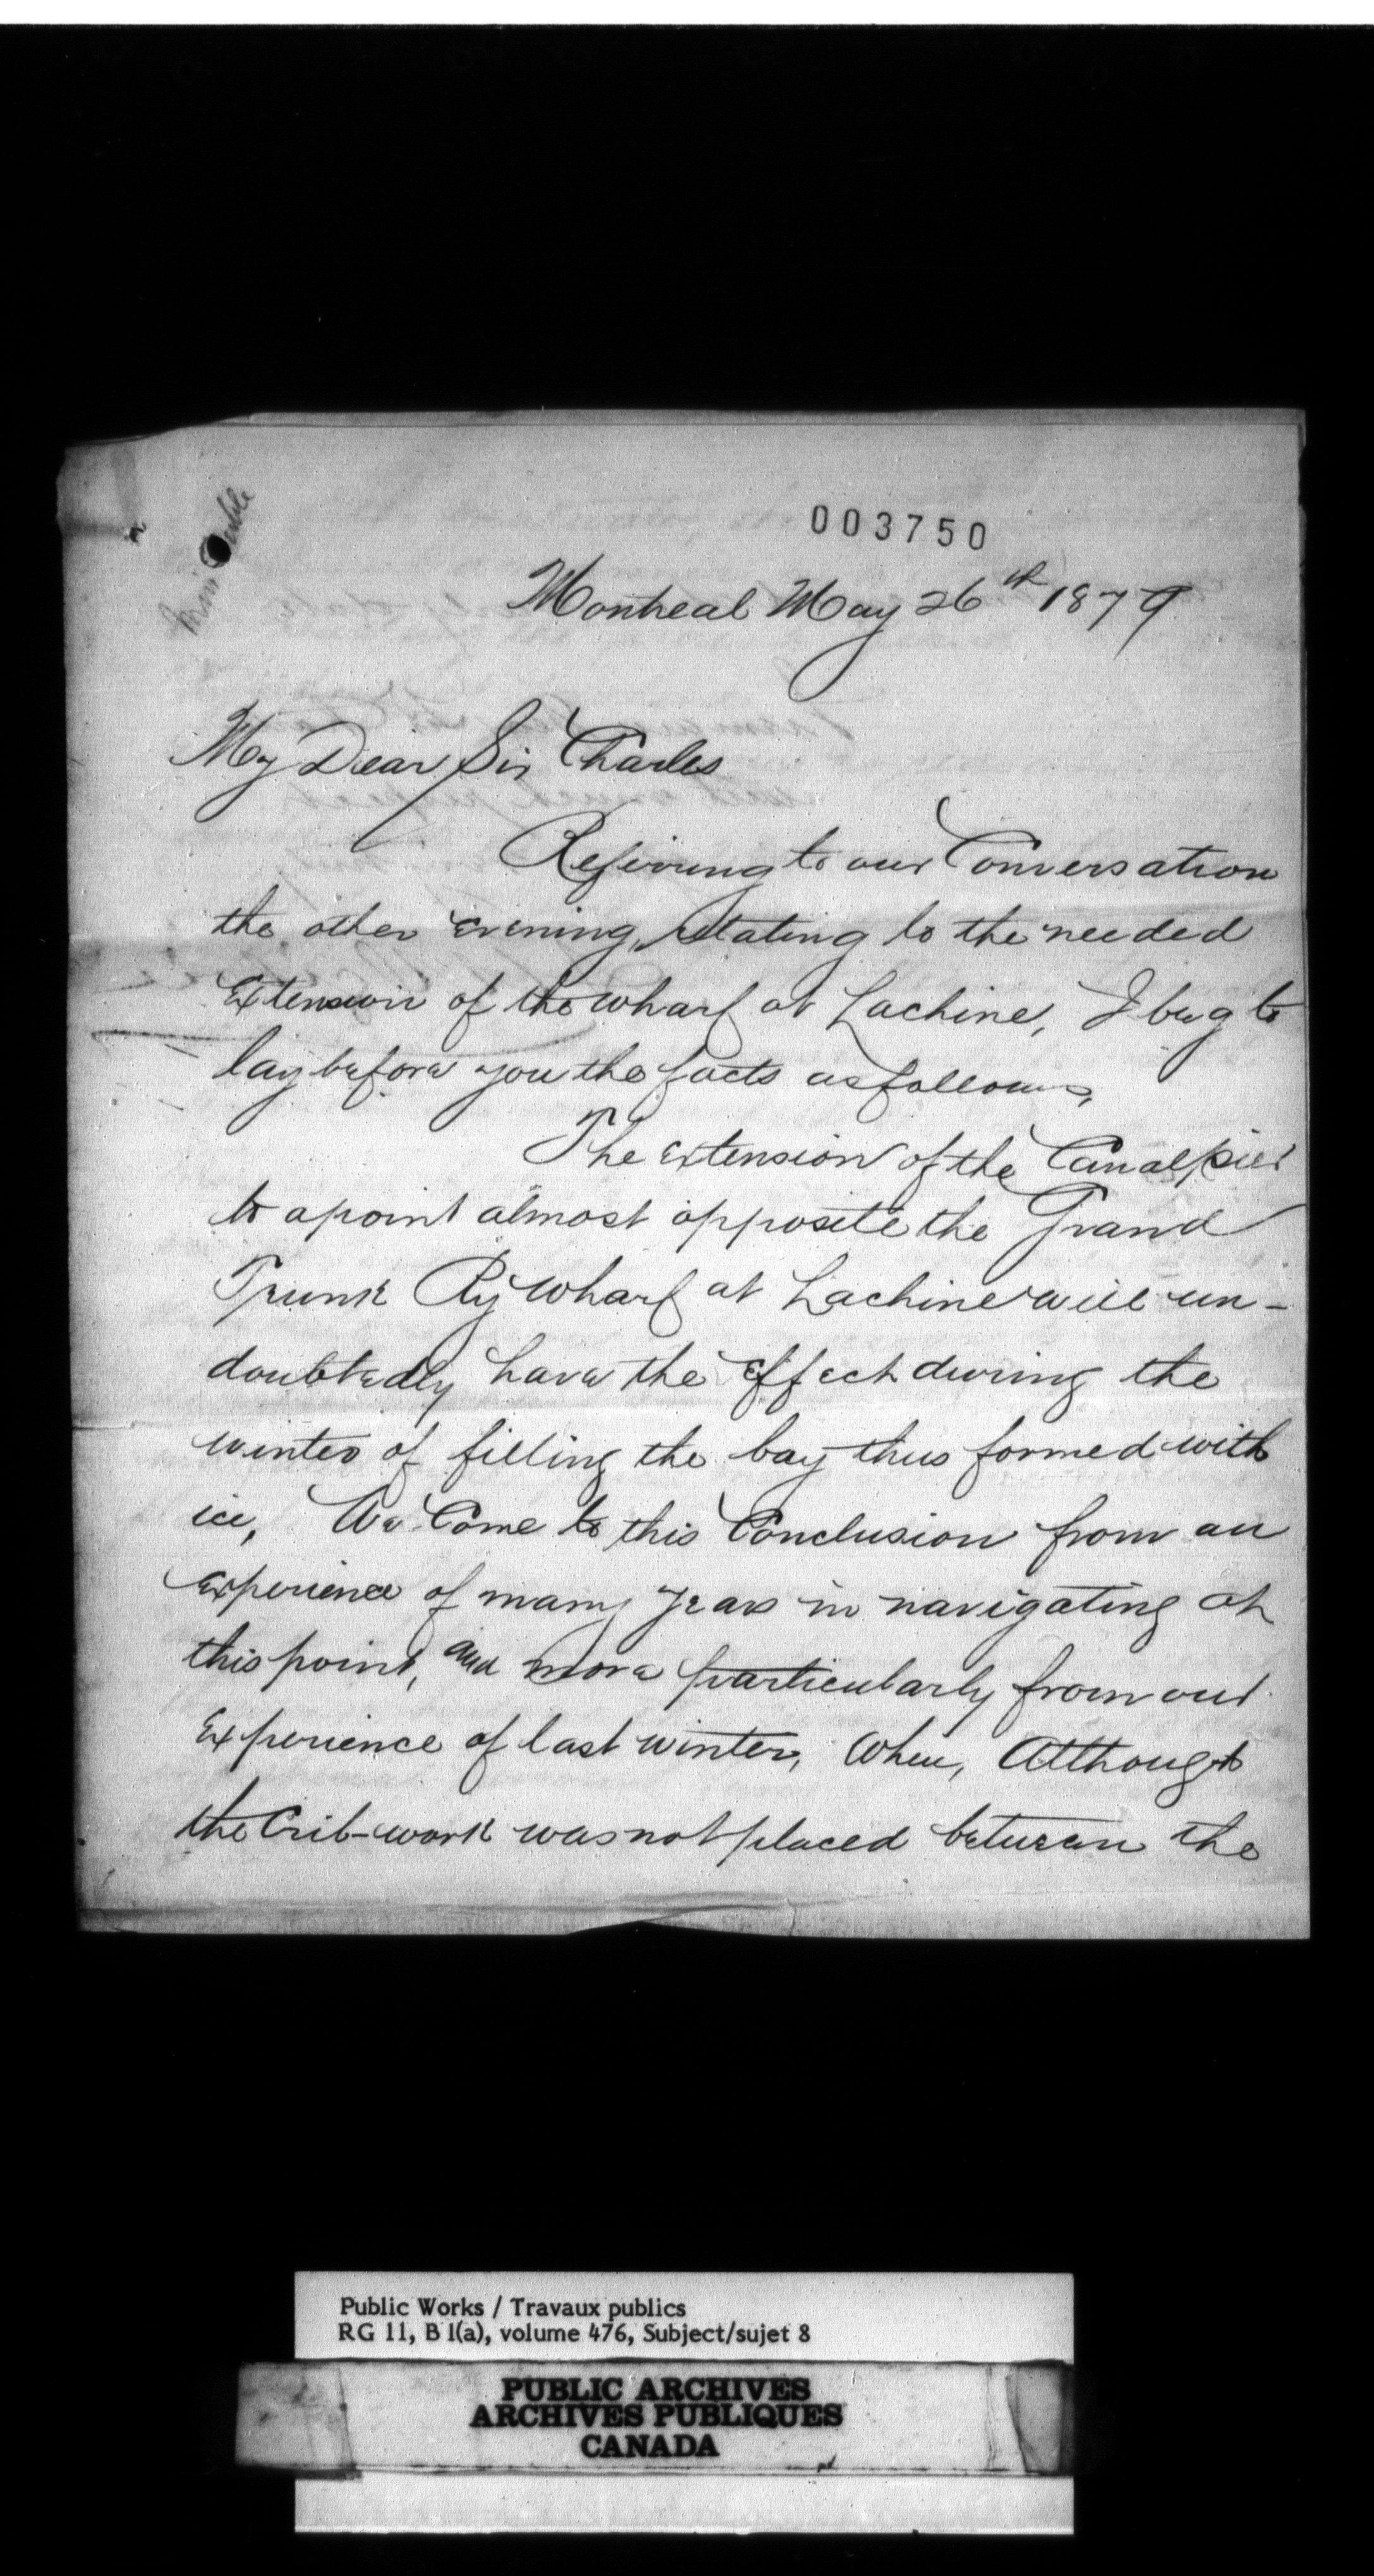 003750
Montreal May 26th 1879
My Dear Sir Charles
Referring to our Conversation
the other Evening, relating to the needed
Extension of the wharf at Lachine, I beg to
lay before you the facts as follows,
The extension of the Canal pier
to a point almost opposite the Grand
Trunk Ry wharf at Lachine will un-
doubtedly have the Effect during the
winter of filling the bay thus formed with
ice, We Come to this Conclusion from an
Experience of many years in navigating at
this point, and more particularly from our
Experience of last winter, when, Although
the Crib-work was not placed between the
Public Works / Travaux publics
RG 11, B 1(a), volume 476, Subject/sujet 8
PUBLIC ARCHIVES
ARCHIVES PUBLIQUES
CANADA